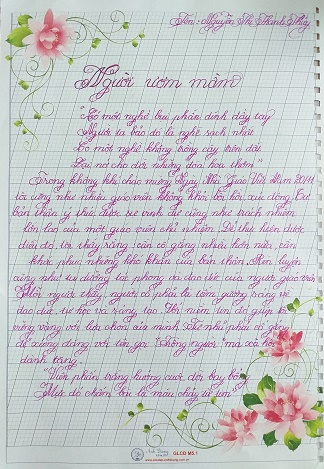 Tên: Nguyễn Thị Thanh Thủy
Người ươm mầm
"Có một nghề bụi phấn dính đầy tay
Người ta bảo đó là nghề sạch nhất
Có một nghề không trồng cây trên đất
Lại nở cho đời những đóa hoa thơm"
Trong không khí chào mừng Ngày Nhà Giáo Việt Nam 20/11
tôi cũng như nhiều giáo viên không khỏi bồi hồi, xúc động.
bản thân ý thức được sự vinh dự cũng như trách nhiệm
lớn lao của một giáo viên chủ nhiệm. Để thực hiện được
điều đó, tôi thấy rằng: cần cố gắng nhiều hơn nữa,
khắc phục những khó khăn của bản thân. Rèn luyện
cũng như tu dưỡng tác phong và đạo đức của người giáo viên
Mỗi người thầy, người cô phải là tấm gương sáng về
đạo đức, tự học và sáng tạo. niềm tin đó giúp ta
vững vàng với lựa chọn của mình. cố gắng
để xứng đáng với tên gọi người" mà xã hội
dành tặng.
"Viên phấn trắng hướng cuộc đời bay bổng
Mực đỏ chấm bài là máu chảy từ tim"
GLCB M5.1